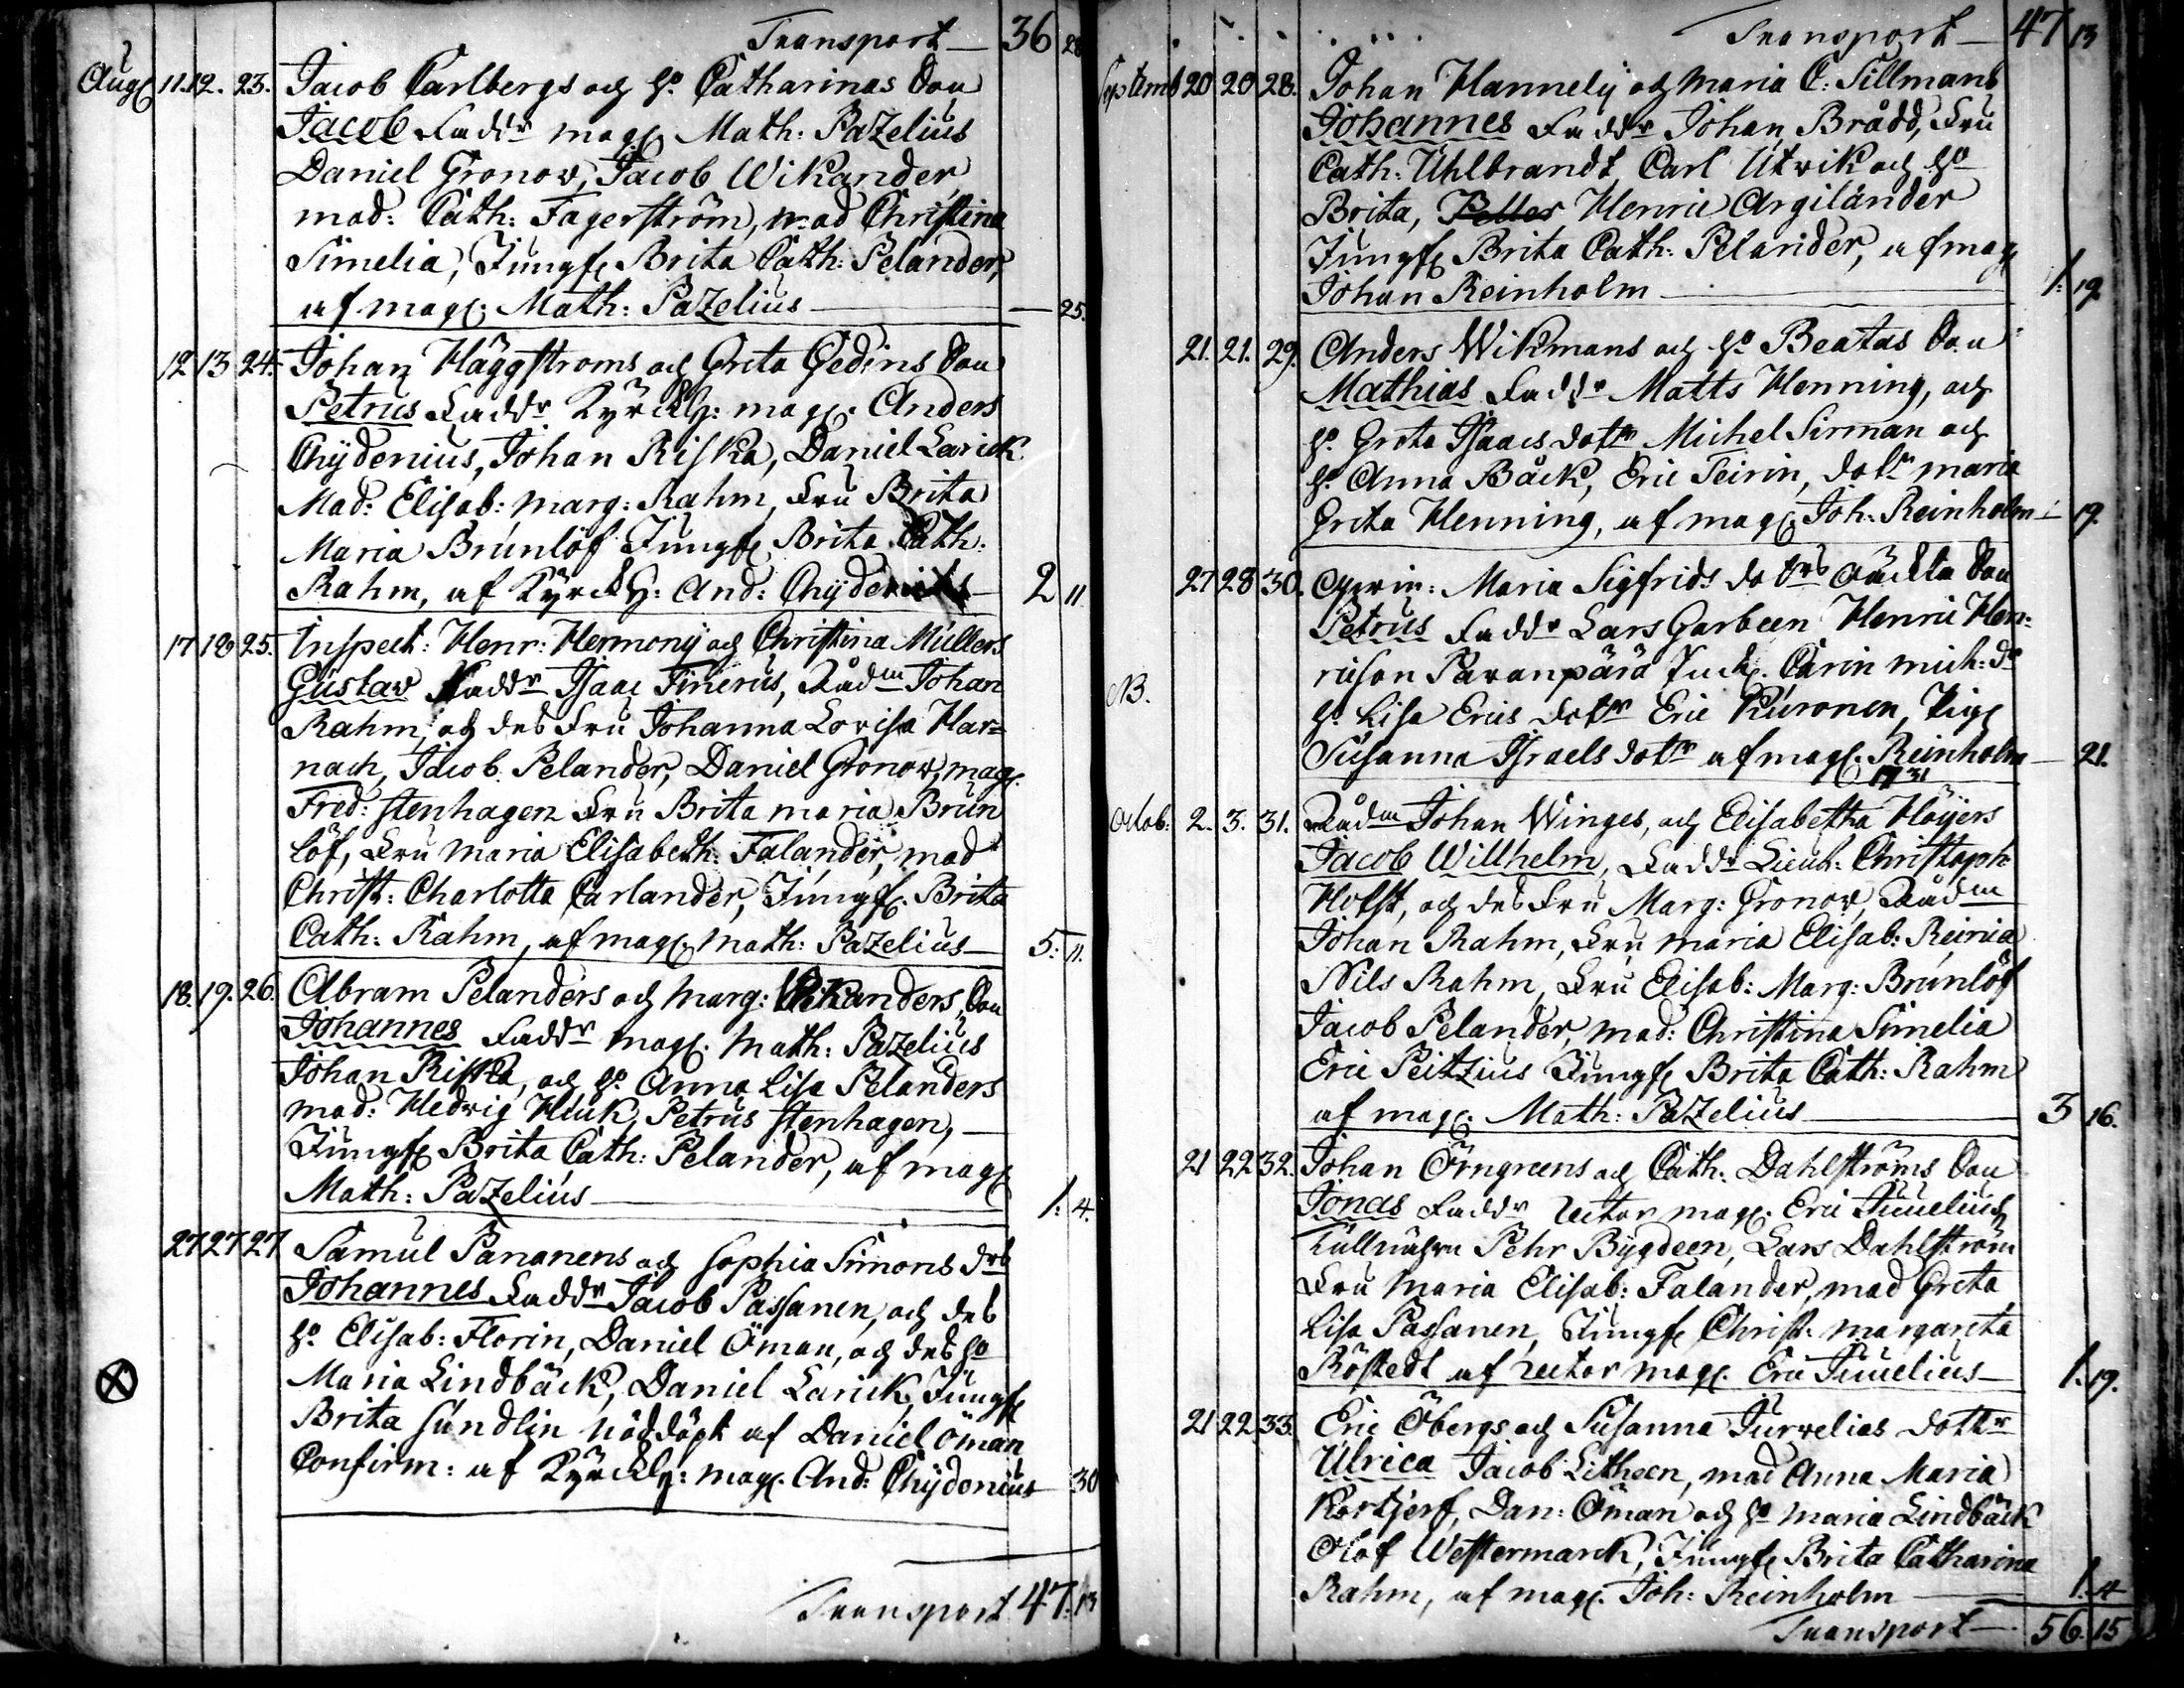 Transport — 36 28
Aug 11. 12. 23. Jacob Carlbergs och h:o Catharinas Son
Jacob Fadd:r mag. Math: Pazelius
Daniel Gronow, Jacob Wikander
mad: Cath: Fagerström, mad Christina
Simelia, Jungf. Brita Cath: Pelander,
af mag. Math: Pazelius — 25.
12 13 24. Johan Häggstroms och Greta Gedins Son
Petrus Fadd:r Kyrckh: mag. Anders
Chydenius, Johan Riska, Daniel Larick
Mad: Elisab: Marg: Rahm, Fru Brita
Maria Brunlöf Jungf. Brita Cath:
Rahm, af Kyrckh: And: Chydenius — 2 11
17 18 25. Inspect: Henr: Hermony och Christina Müllers
Gustav Fadd:r Isaac Finerus, Rådm Johan
Rahm, och des Fru Johanna Lovisa Har=
nach, Jacob Pelander, Daniel Gronow, mag.
Fred: Stenhagen Fru Brita maria Brun
löf, Fru Maria Elisabeth: Falander, mad
Christ: Charlotta Carlander, Jungf. Brita
Cath: Rahm, af mag. Math: Pazelius — 5: 11.
18. 19. 26. Abram Pelanders och Marg: Wikanders, Son
Johannes Fadd:r mag. Math: Pazelius
Johan Riska, och h:o Anna Lisa Pelanders
mad: Hedvig Huk, Petrus Stenhagen, —
Jungf. Brita Cath: Pelander, af mag.
Math: Pazelius — 1: 4.
27 27 27 Samul Pananens och Sophia Simons drs
Johannes Fadd:r Jacob Passanen, och des
h:o Elisab: Florin, Daniel Öman, och des h:o
Maria Lindbäck, Daniel Larick, Jungf.
Brita Sundlin nöddöpt af Daniel Öman
Confirm: af Kyrckh: mag. And: Chydenius — 30
Transport 47. 13
Transport — 47 13
Septemb 20 20 28. Johan Hannely och Maria C: Tillmans
Johannes Fadd:r Johan Brådd, Fru
Cath: Uhlbrandt, Carl Utvik och h:o
Brita, Henric Argilander
Jungf. Brita Cath: Pelander, af mag.
Johan Reinholm — 1: 19.
21. 21. 29. Anders Wikmans och h:o Beatas Son
Mathias Fadd:r Matts Henning, och
h:o Greta Isaacs dotr Michel Sirman och
h:o Anna Bäck, Eric Teirin, dotr maria
Greta Henning, af mag. Joh: Reinholm — 19.
27 28 30. Maria Sigfrids dotrs oäckta Son
Petrus Fadd:r Lars Garbeen Henric Hen=
ricson Paranpärä Carin Mich: dr
NB. h:o Lisa Erics dotr Eric Kuronen, Pig.
Susanna Israels dotr af mag. Reinholm — 21.
17 31
Octob: 2. 3. 31. Rådm Johan Winges, och Elisabetha Höijers
Jacob Willhelm, Fadd:r Lieut: Christoph
Holst, och des Fru Marg: Gronow, Rådm
Johan Rahm, Fru maria Elisab: Reinia
Nils Rahm, Fru Elisab: Marg: Brunlöf
Jacob Pelander, mad: Christina Simelia
Eric Peitzius Jungf. Brita Cath: Rahm
af mag. Math: Pazelius — 3 16.
21 22 32. Johan Örngreens och Cath: Dahlströms Son
Jonas Fadd:r rector mag. Eric Juvelius,
Tullnährn Pehr Bygdeen, Lars Dahlström
Fru Maria Elisab: Falander, mad Greta
Lisa Passanen, Jungf. Christ: margareta
Röstedt af rector mag. Eric Juvelius — 1. 19.
21 22 33. Eric Öbergs och Susanna Turvelias dottr
Ulrica Jacob Litheen, mad Anna Maria
Kortjerf, Dan: Öman och h:o Maria Lindbäck
Olof Westermarck, Jungf. Brita Catharina
Rahm, af mag. Joh: Reinholm — 1. 4
Transport — 56. 15